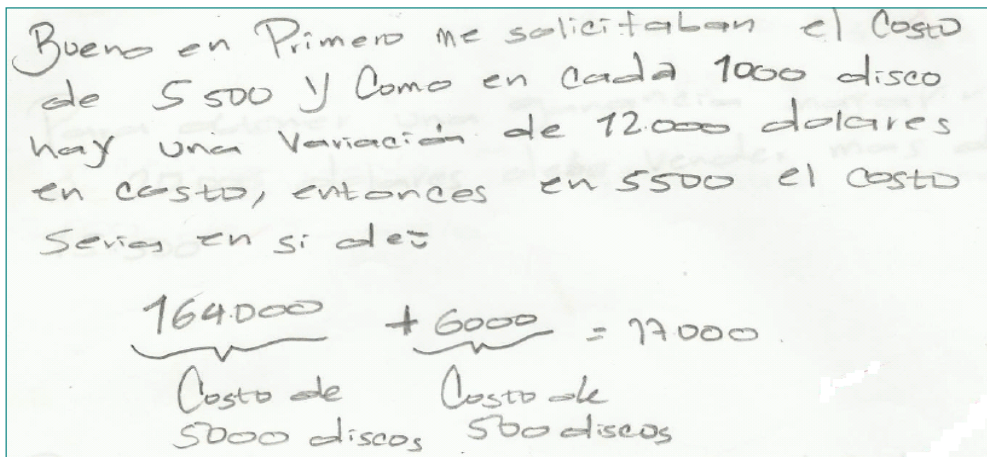 Bueno en Primero me solicitaban el Costo
de 5500 y Como en cada 1000 disco
hay una Variación de 12.000 dolares
en costo, entonces en 5500 el costo
Seria en si de:
164.000 + 6000 = 17000
Costo de Costo de
5000 discos 500 discos